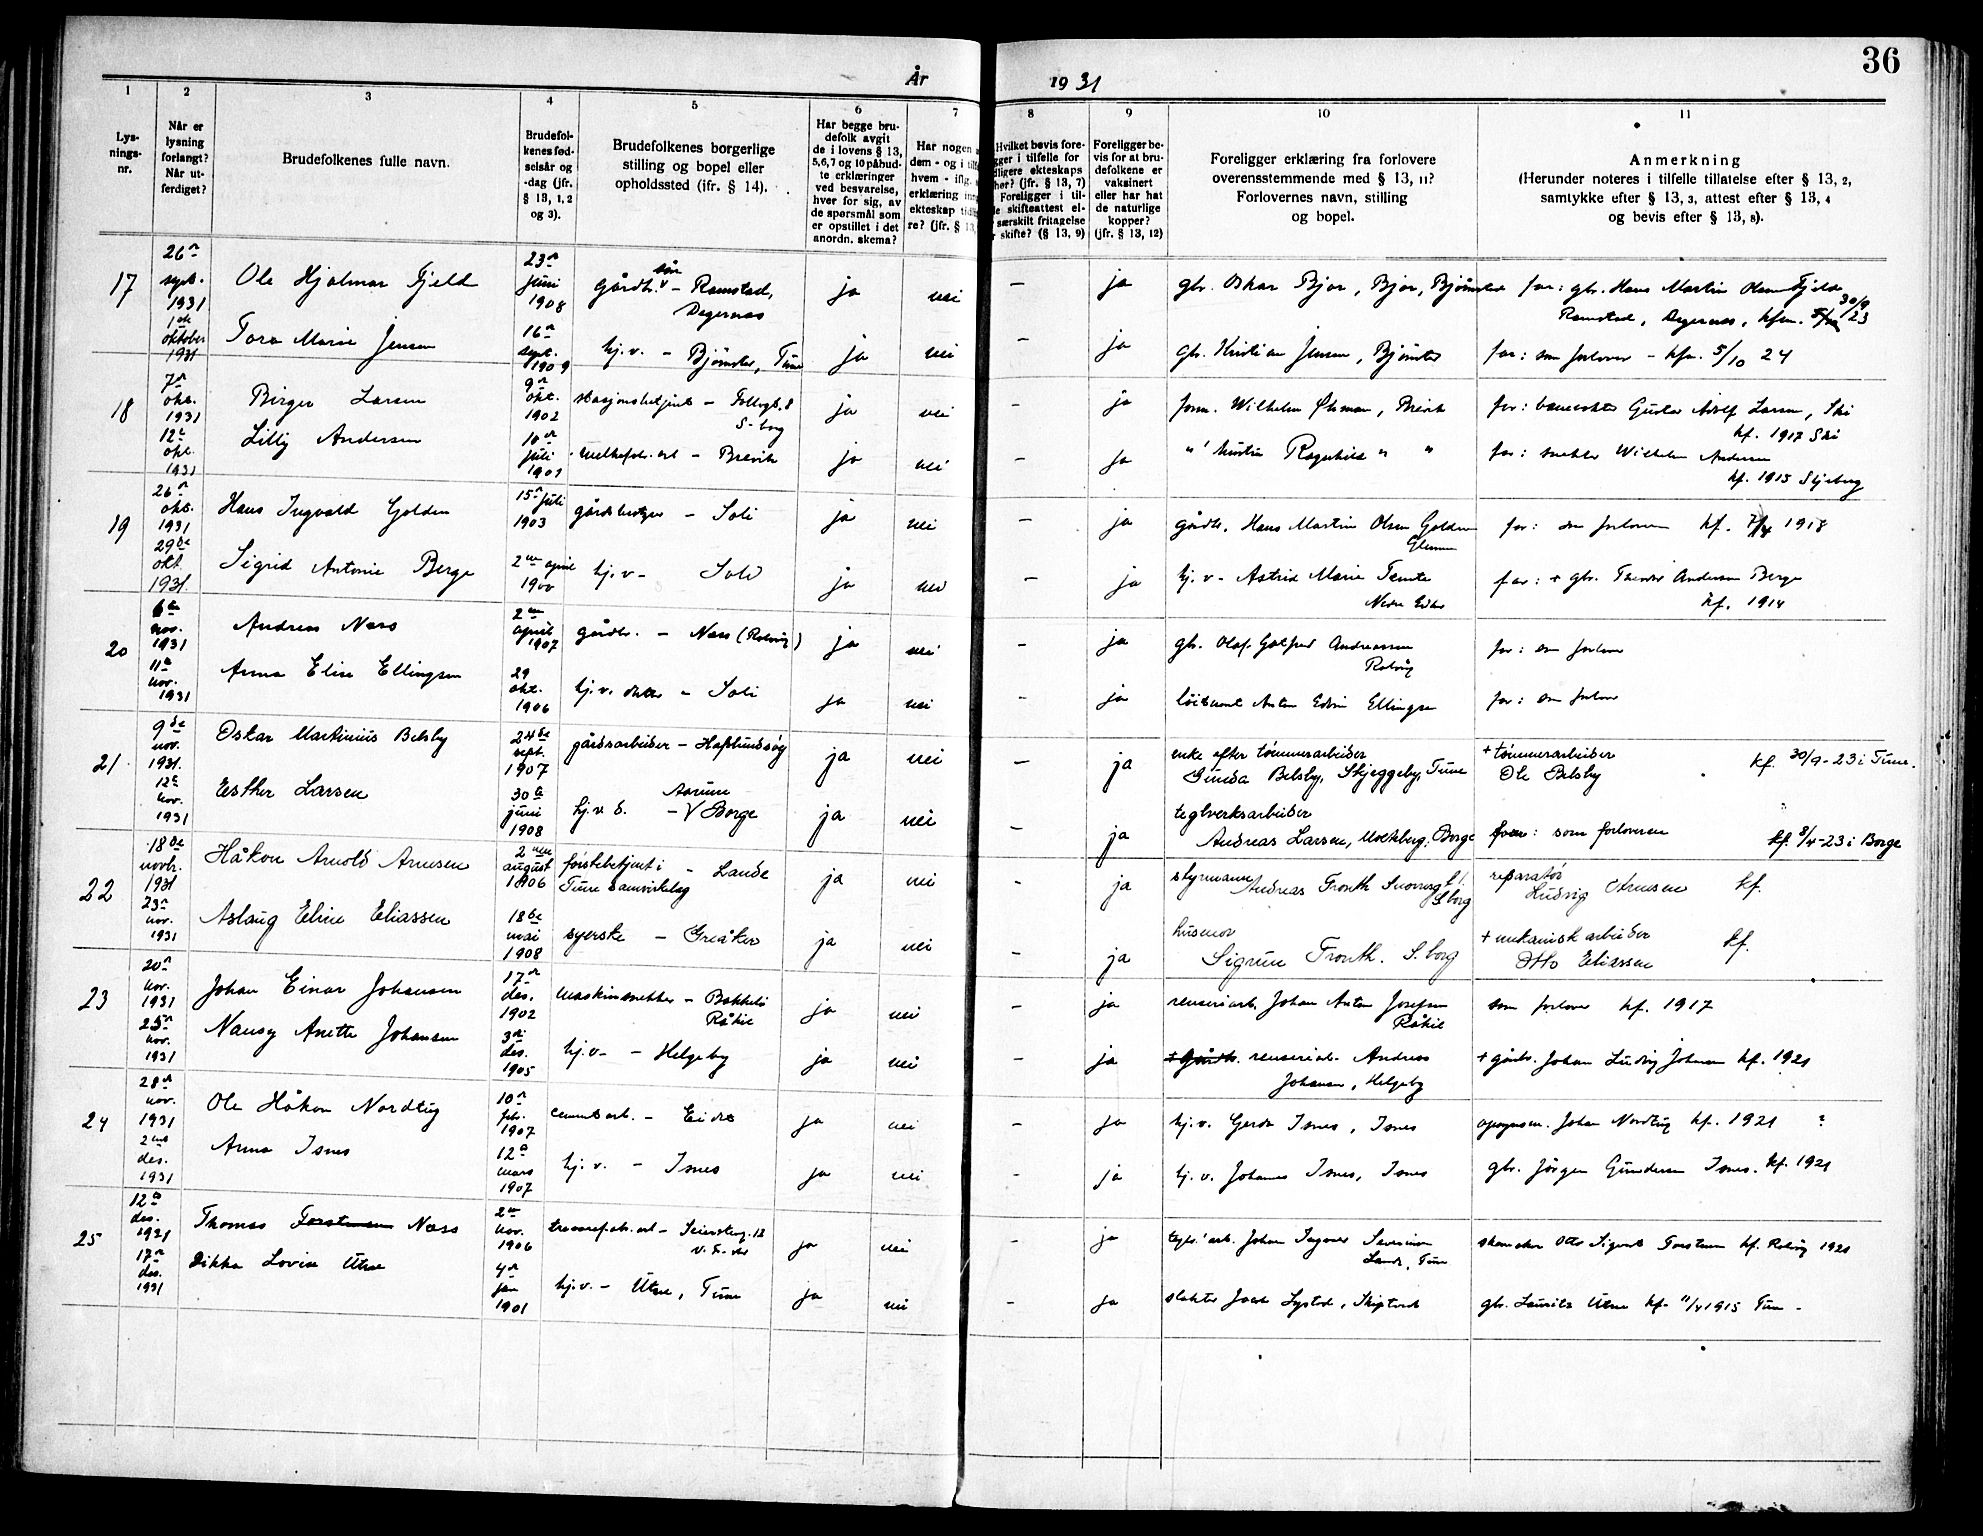 36
År 1931
1 2 3 4 5 6 7 8 9 10 11
Lys-
nings-
nr.
Når er
lysning
forlangt?
Når ut-
ferdiget?
Brudefolkenes fulle navn.
Brudefol-
kenes fød-
selsår og
-dag (jfr.
§ 13, 1, 2
og 3).
Brudefolkenes borgerlige
stilling og bopel eller
opholdssted (ifr. § 14).
Har begge bru-
defolk avgit
de i lovens § 13,
5,6,7 og 10 påbud-
te erklæringer
ved besvarelse,
hver for sig, av
de spørsmål som
er opstillet i det
anordn. skema?
Har nogen
dem - og i
hvem - iflg.
erklæring
ekteskap
re? (jfr. §
Hvilket bevis fore-
i tilfelle for
ekteskaps
(jfr. § 13, 7)
Foreligger i til-
skifteattest el-
særskilt fritagelse
skifte? (§ 13, 9)
Foreligger be-
vis for at bru-
defolkene er
vaksinert
eller har hat
de naturlige
kopper?
(jfr. § 13, 12)
Foreligger erklæring fra forlovere
overensstemmende med § 13, 11?
Forlovernes navn, stilling
og bopel.
Anmerkning
(Herunder noteres i tilfelle tillatelse efter § 13, 2,
samtykke efter § 13, 3, attest efter § 13, 4
og bevis efter § 13, 8).
17 26n sept. 1931 Ole Hjalmar Fjeld 23n juni 1908 gårdb. søn - Ramstad, Degernes ja nei - ja gbr. Oskar Bjor, Bjor, far: gbr. Hans Martin Olsen Fjeld
Ramstad, Degernes, 30/9 23
1ste oktober 1931 Tora Marie Jensen 16n sept. 1909 hj.v. - Tune ja nei - ja gbr. Kristian Jensen, far: som forlover - kfn. 5/10 24
18 7n okt. 1931 Birger Larsen 9n okt. 1902 stasjonsbetjent - S-borg ja nei - ja form. Wilhelm Brevik far: Gustav Adolf Larsen, Ski
kf. 1917 Ski
12te okt. 1931 Lilly Andersen 10de juli 1901 arb. - Brevik ja nei - ja " hustru Ragnhild " " far: snekker Wilhelm Andersen
kf. 1915 Skjeberg
19 26n okt. 1931 Hans Ingvald Golden 15n juli 1903 - Soli ja nei - ja gårdb. Hans Martin Olsen Golden far: som forloveren kf. 1918
29de okt. 1931. Sigrid Antonie Berge 2nen april 1900 hj.v - Soli ja nei - ja hj.v - Astrid Marie far: + gbr. Andersen Berge
kf. 1914
20 6te nov. 1931 Andreas Næss 2nen april 1907 gårdbr. - Næss (Rolvsøy) ja nei - ja gbr. Olaf Andreassen
Rolvsøy far: som forlover
11te nov. 1931 Anna Elise Ellingsen 29 okt. 1906 hj.v. datter - Soli ja nei - ja løitnant Anton Edvin Ellingsen far: som forlover
21 9de nov. 1931. Oskar Martinius Belsby 24de sept. 1907 gårdsarbeider - Hafslundsøy ja nei - ja enke efter tømmerarbeider
Gunda Belsby, Skjeggeby, Tune + tømmerarbeider
Ole Belsby kf. 30/9-23 i Tune.
12te nov. 1931 Esther Larsen 30te juni 1908 hj.v. d. - Borge ja nei - ja teglverksarbeider
Andreas Larsen, Moekberg, Borge far: som forloveren kf. 8/4-23 i Borge
22 18de novbr. 1931 Håkon Arnold Arnesen 2nen august 1906 førstebetjent i
Tune samvirkelag - Lande ja nei - ja styrmann
Andreas Tronth
S.borg reparatør
Ludvig Arnesen kf.
23n nov. 1931 Aslaug Eline Eliassen 18de mai 1908 syerske - Greåker ja nei - ja husmor
Sigrun Tronth. S.borg + mekanisk arbeider
Otto Eliassen kf.
23 20n nov. 1931 Johan Einar Johansen 17de des. 1902 maskinsnekker - Bakkeli
Råkil ja nei - ja renseriarb. Johan Anton Josefsen
Råkil som forlover kf. 1917
25n nov. 1931 Nancy Anette Johansen 3di des. 1905 hj.v. - Helgeby ja nei - ja renseriarb. Andreas
Johansen, Helgeby + gårdb. Johan Ludvig Johansen kf. 1921
24 28n nov. 1931 Ole Håkon Nordtug 10n feb. 1907 cementarb. - Eidet ja nei - ja hj.v. Gerda Isnes, Isnes Johan Nordtug kf. 1921 ?
2nen des. 1931 Anna Isnes 12te mars 1907 hj.v. - Isnes ja nei - ja hj.v. Johannes Isnes, Isnes gbr. Jørgen Gundersen Isnes. kf. 1921
25 12te des. 1931 Thomas Næss 2nen nov. 1906 ja nei - ja teglv. arb. Johan Severinsen
Lande, Tune Otto Sigurd kf. Rolvsøy 1921
17n des. 1931 Dikka Lovise Utne 4de jan 1901 hj.v. - Utne, Tune ja nei - ja slakter gbr. Laurits Utne kf. 11/4 1915 Tune -